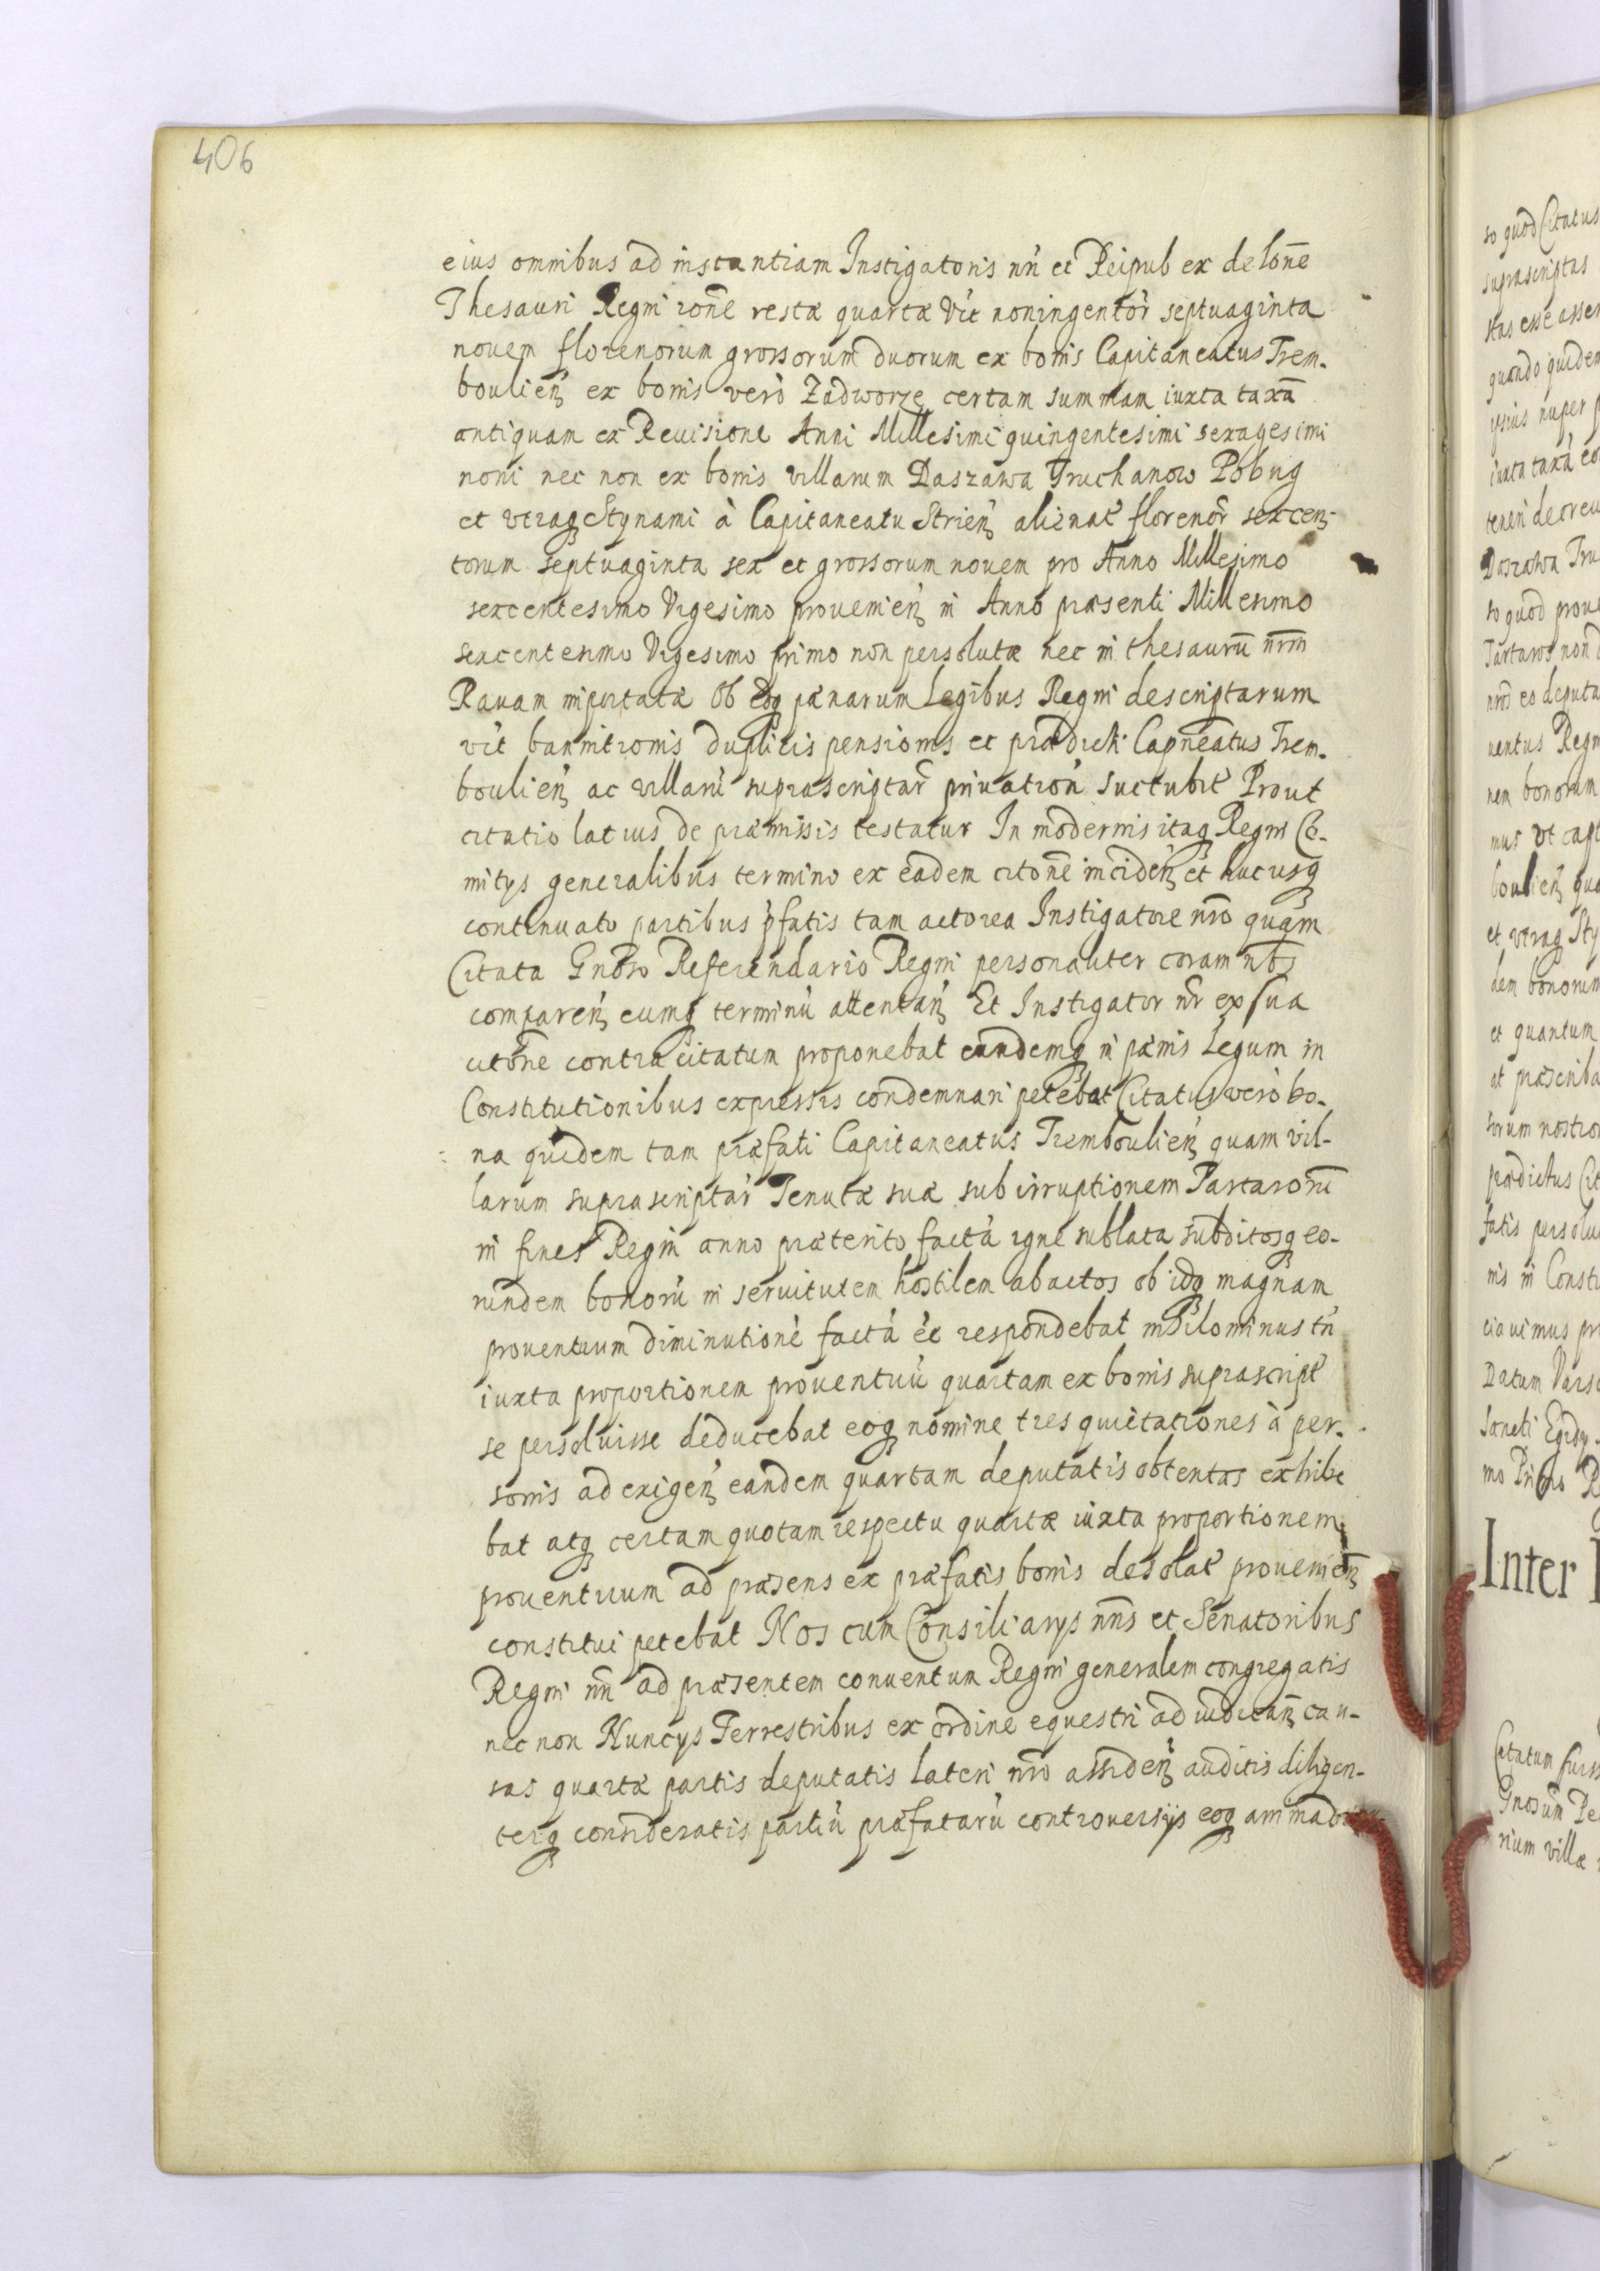 406
eius omnibus ad instantiam Instigatoris nri et Reipub ex delõne
Thesauri Regni rõne restæ quartæ vit noningentor septuaginta
nouem florenorum grossorum duorum ex bonis Capitaneatus Trem-
boulien ex bonis verò Zadworze certam summam iuxta taxã
antiquam ex Reuisione Anni Millesimi quingentesimi sexagesimi
noni nec non ex bonis villarum Daszawa Truchanow Pobug
et vtraq Stynami à Capitaneatu Strien alienat florenor sexcen-
torum septuaginta sex et grossorum nouem pro Anno Millesimo
sexcentesimo Vigesimo prouenien in Anno præsenti Millesimo
sexcentesimo Vigesimo primo non persolutæ nec in thesaurũ nrm
Rauam importatæ Ob eoq pænarum Legibus Regni descriptarum
vit bannitionis duplicis pensionis et prædicti Capneatus Trem-
boulien ac villarũ suprascriptar priuation succubit Prout
citatio latius de præmissis testatur In modernis itaq Regni Co-
mitys generalibus termino ex eadem citõne inciden et hucusq
continuato partibus pfatis tam actorea Instigatore nro quam
Citata Gnoso Referendario Regni personaliter coram nobis
comparen eumq terminũ attentan Et Instigator nr ex sua
citõne contra citatum proponebat eundemq in pænis Legum in
Constitutionibus expressis condemnari petebat Citatus verò bo-
na quidem tam præfati Capitaneatus Tremboulien quam vil-
larum suprascriptar Tenutæ suæ sub irruptionem Tartarorũ
in fines Regni anno præterito factã igne sublata subditosq eo-
rundem bonorũ in seruitutem hostilem abactos ob idq magnam
prouentuum diminutionẽ factã ẽe respondebat nihilominus tñ
iuxta proportionem prouentuũ quartam ex bonis suprascript
se persoluisse deducebat eoq nomine tres quietationes à per-
sonis ad exigen eandem quartam deputatis obtentas exhibe
bat atq certam quotam respectu quartæ iuxta proportionem
prouentuum ad præsens ex præfatis bonis desolat prouenien
constitui petebat Nos cum Consiliarys nris et Senatoribus
Regni nri ad præsentem conuentum Regni generalem congregatis
nec non Nuncys Terrestribus ex ordine equestri ad iudican cau-
sas quartæ partis deputatis lateri nro assiden auditis diligen-
terq consideratis partiũ præfatarũ controuersijs eoq
so quod Citatus
suprascriptas
quando quidem
ipsius nuper
iuxta taxã
Daszawa Tru
so quod proue
Tartaros non
uentus Regn
nem bonorum
mus vt capt
boulien qua
et vtraq Sty
dem bonorum
et quantum
ut præscriba
sorum nostror
prædictus Cit
fatis persolu
nis in Consti
Datum Vars
Sancti Egidy
mo Primo
Inter
Citatum fuiss
Gnosum
rium villæ